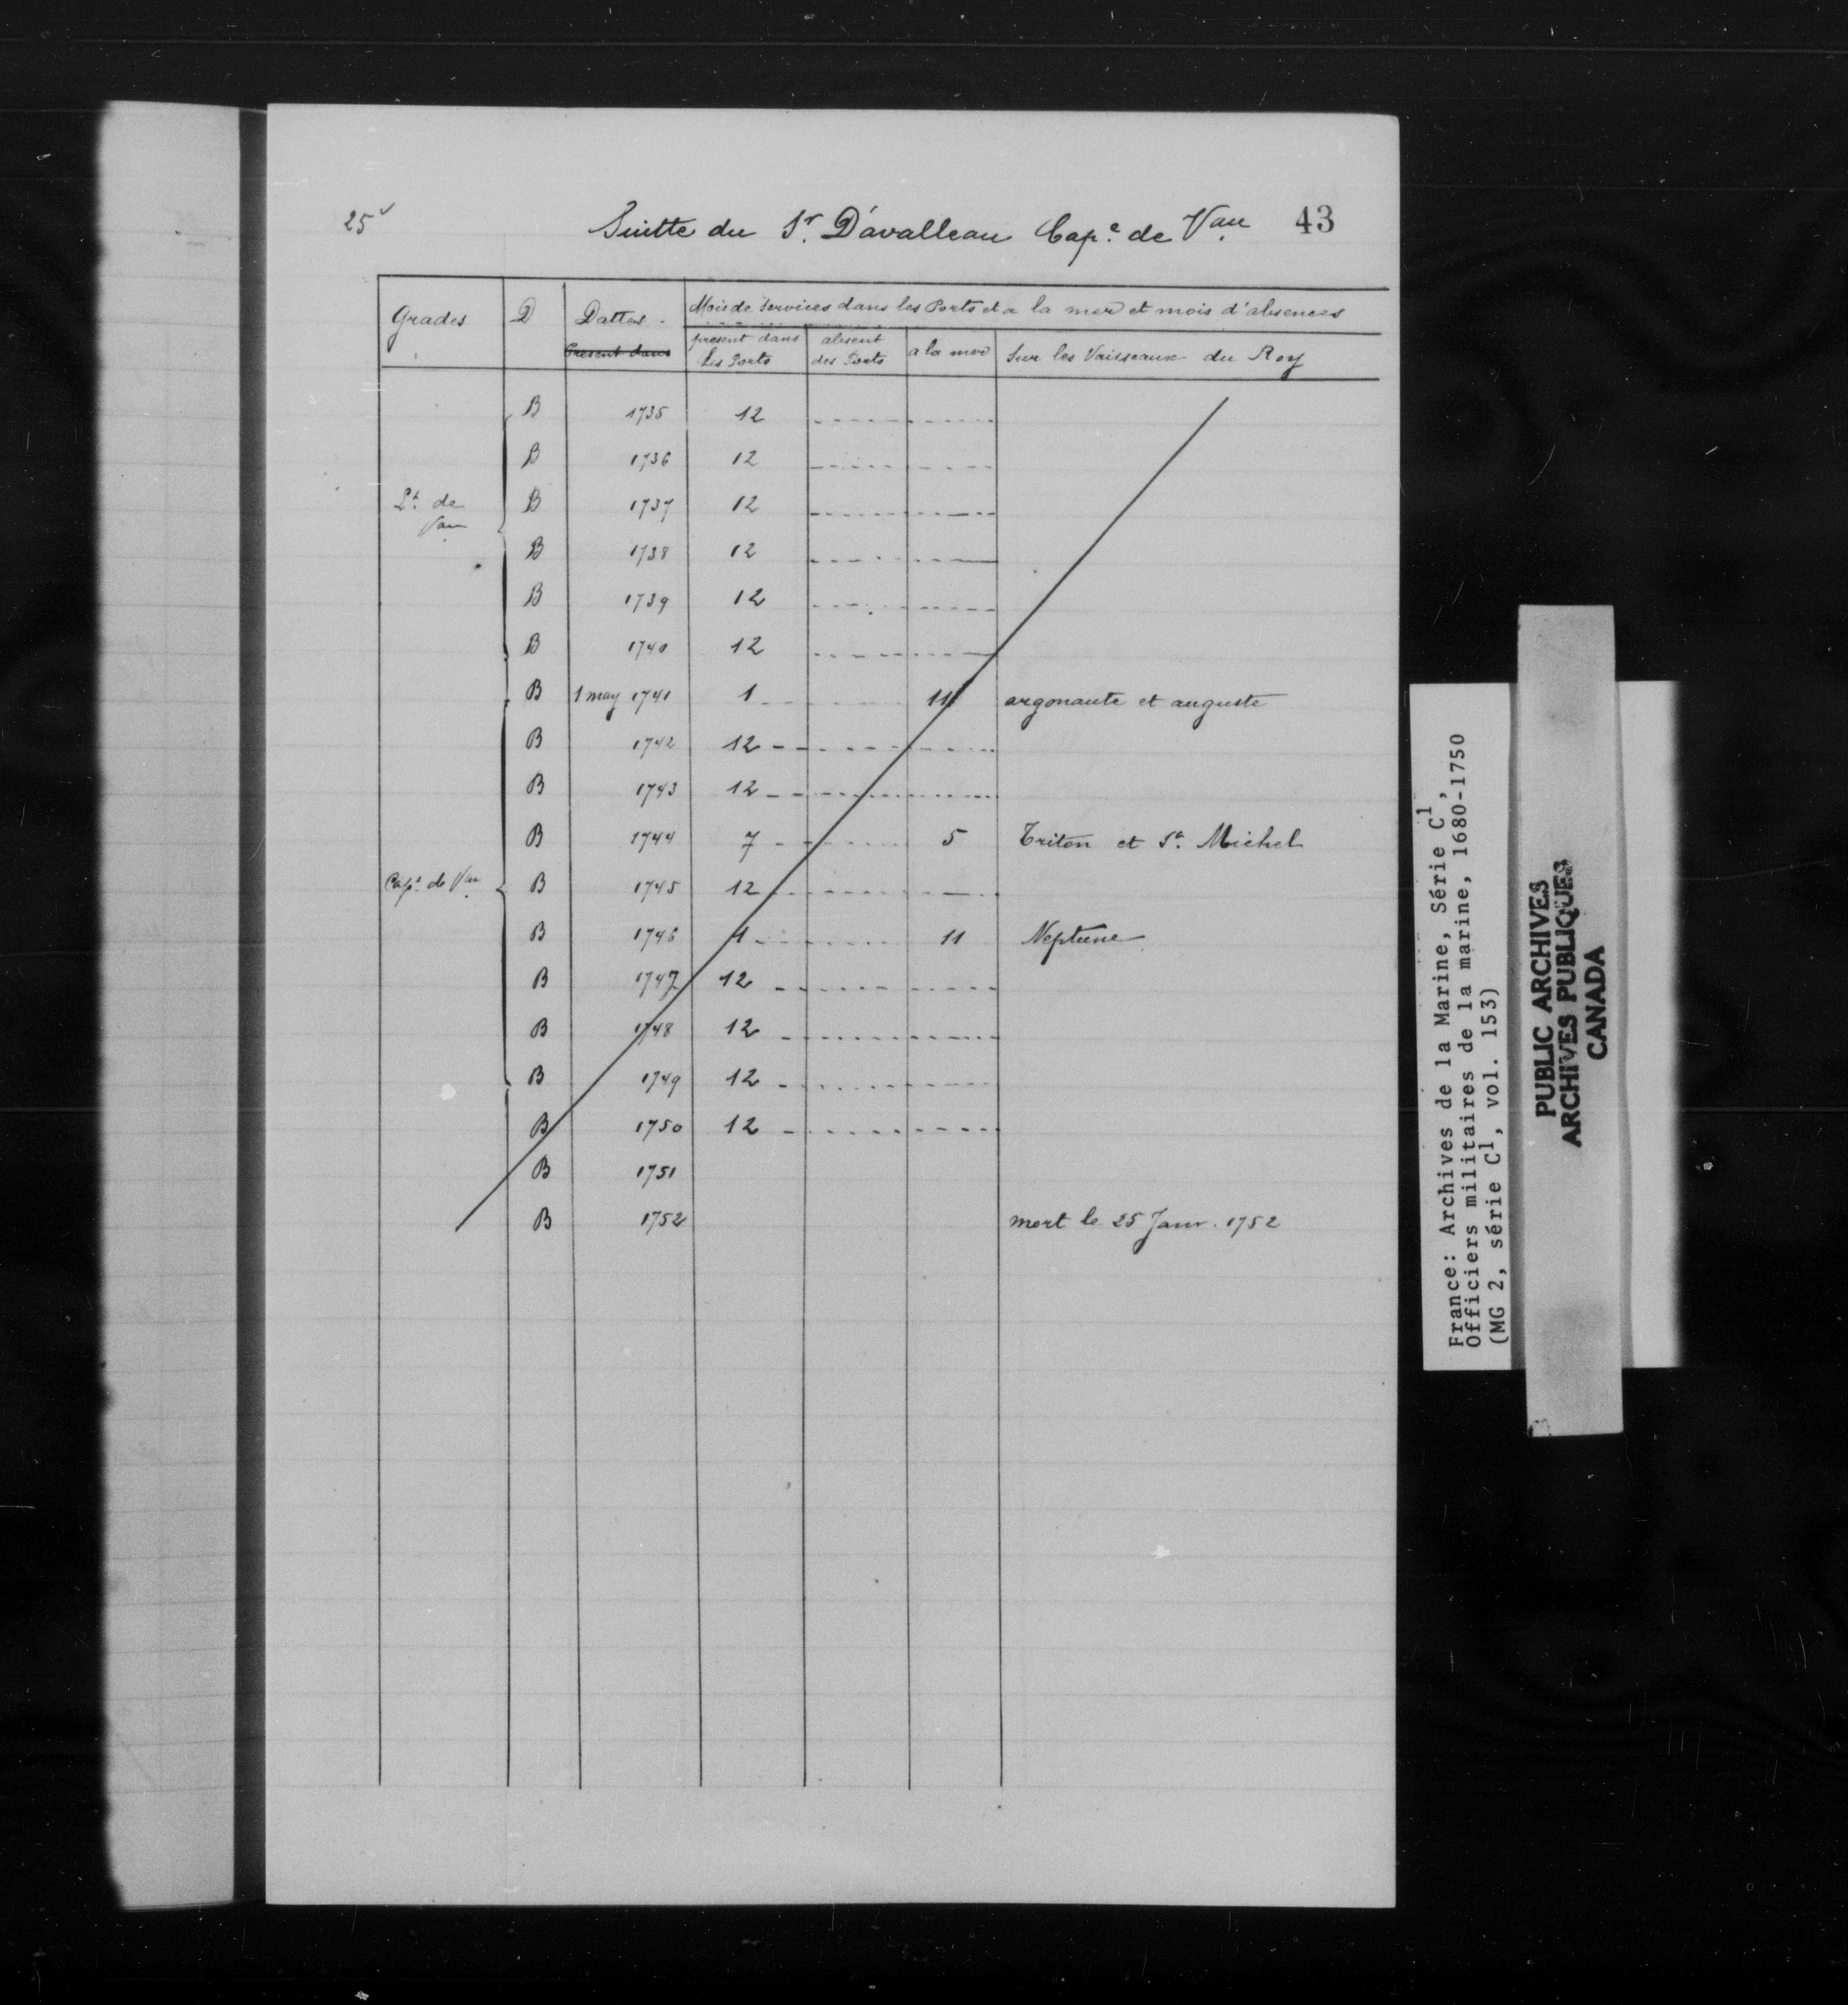 25v
Suitte du Sr. D'avalleau Cape. de Vau. 43
Grades D Dattes. Mois de Services dans les Ports et a la mer et mois d'absences
Present dans present dans les Ports absent des Ports a la mer Sur les Vaisseaux du Roy
B 1735 12
B 1736 12
Lt. de Vau. B 1737 12
B 1738 12
B 1739 12
B 1740 12
B 1 may 1741 1 11 argonaute et auguste
B 1742 12
B 1743 12
B 1744 7 5 Triton et St. Michel
Cape. de Vau. B 1745 12
B 1746 1 11 Neptune
B 1747 12
B 1748 12
B 1749 12
B 1750 12
B 1751
B 1752 mort le 25 Janv. 1752
France: Archives de la Marine, Série C1,
Officiers militaires de la marine, 1680-1750
(MG 2, série C1, vol. 153)
PUBLIC ARCHIVES
ARCHIVES PUBLIQUES
CANADA